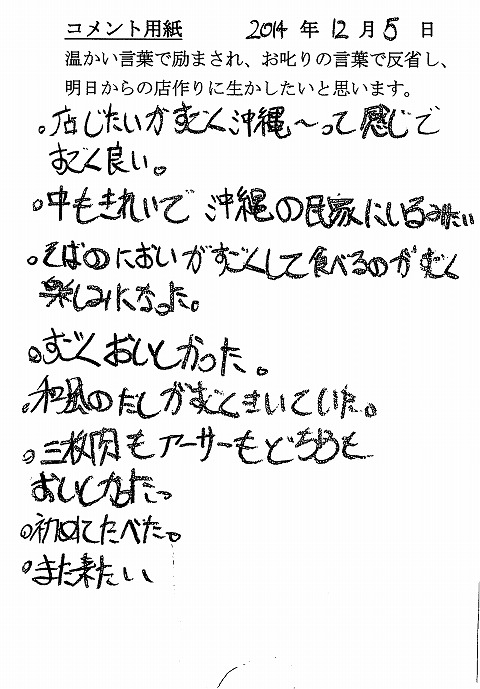 コメント用紙 2014年12月5日
温かい言葉で励まされ、お叱りの言葉で反省し、
明日からの店作りに生かしたいと思います。
。店じたいがすごく沖縄〜って感じで
すごく良い。
。中もきれいで 沖縄の民家にいるみたい
。そばのにおいがすごくして食べるのがすごく
楽しみになった。
。すごくおいしかった。
。和風のだしがすごくきいていた。
。三枚肉もアーサーもどちらも
おいしかった。
。初めてたべた。
。また来たい